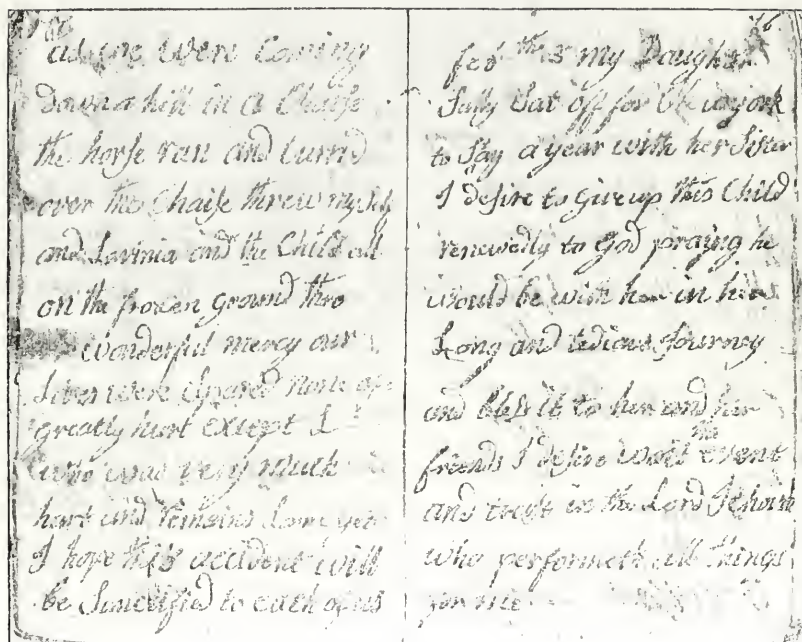 as we were Coming
down a hill in a Chaise
the horse ran and turnd
over the Chaise threw my Self
and Lavinia and the Child all
on the frozen ground thro
wonderful mercy our
Lives were spared none
greatly hurt except L
who was very much
hurt and remains Lame yet
I hope this accident will
be Sanctified to each of us
76
feb my Daughter
Sally Sat off for
to Stay a year with her Sister
I desire to give up this Child
renewedly to God praying he
would be with her in her
Long and tedious Journey
and bless it to her and her
friends I desire wait the event
and trust in the Lord Jehovah
who performeth all things
for me